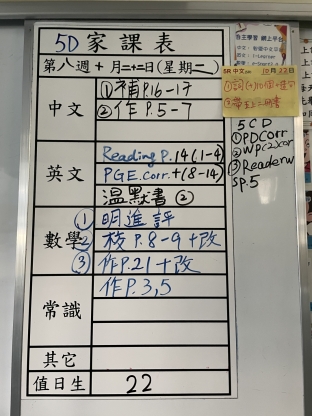 5D 家課表
第八週 十月二十二日(星期二)
中文
①補P.16-17
②作P.5-7
英文
Reading P.14(1-4)
PGE.corr.+(8-14)
溫默書②
數學
①明進評
② P.8-9+改
③作P.21+改
常識
作P.3,5
其它
值日生
22
自主學習 網上平台
5R 中文 10月22日
5CD
①PDCorr
②WP(2)corr
③Readerw
SP.5